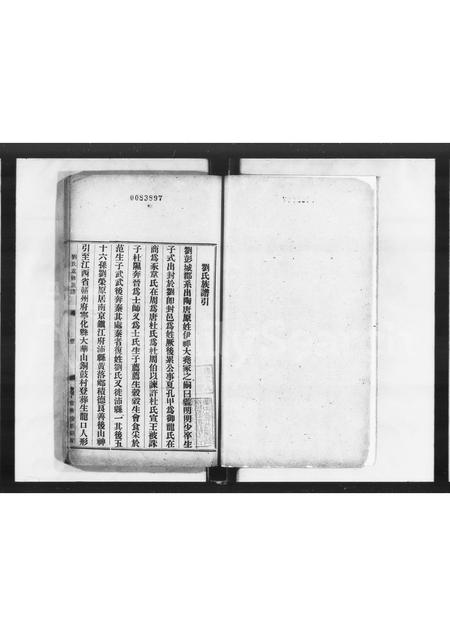 0083897
劉氏族譜引
劉彭城郡系出陶唐厥姓伊祁大堯家之嗣曰監明明少卒生
子式出封於劉卽封邑爲姓厥後累公事夏孔甲爲御龍氏在
商爲豕韋氏在周爲唐杜氏爲杜周伯以諫許杜氏宣王被誅
子杜隰奔晉爲士師又爲士氏生子蒍蒍生縠縠生會食采於
范生子武武後奔秦其處秦者復姓劉氏又徙沛縣一其後五
十六孫劉榮原居南京鎭江府沛縣黃落鄉積德良善後山神
引至江西省贛州府寧化縣大華山銅鼓村登葬生龍口人形